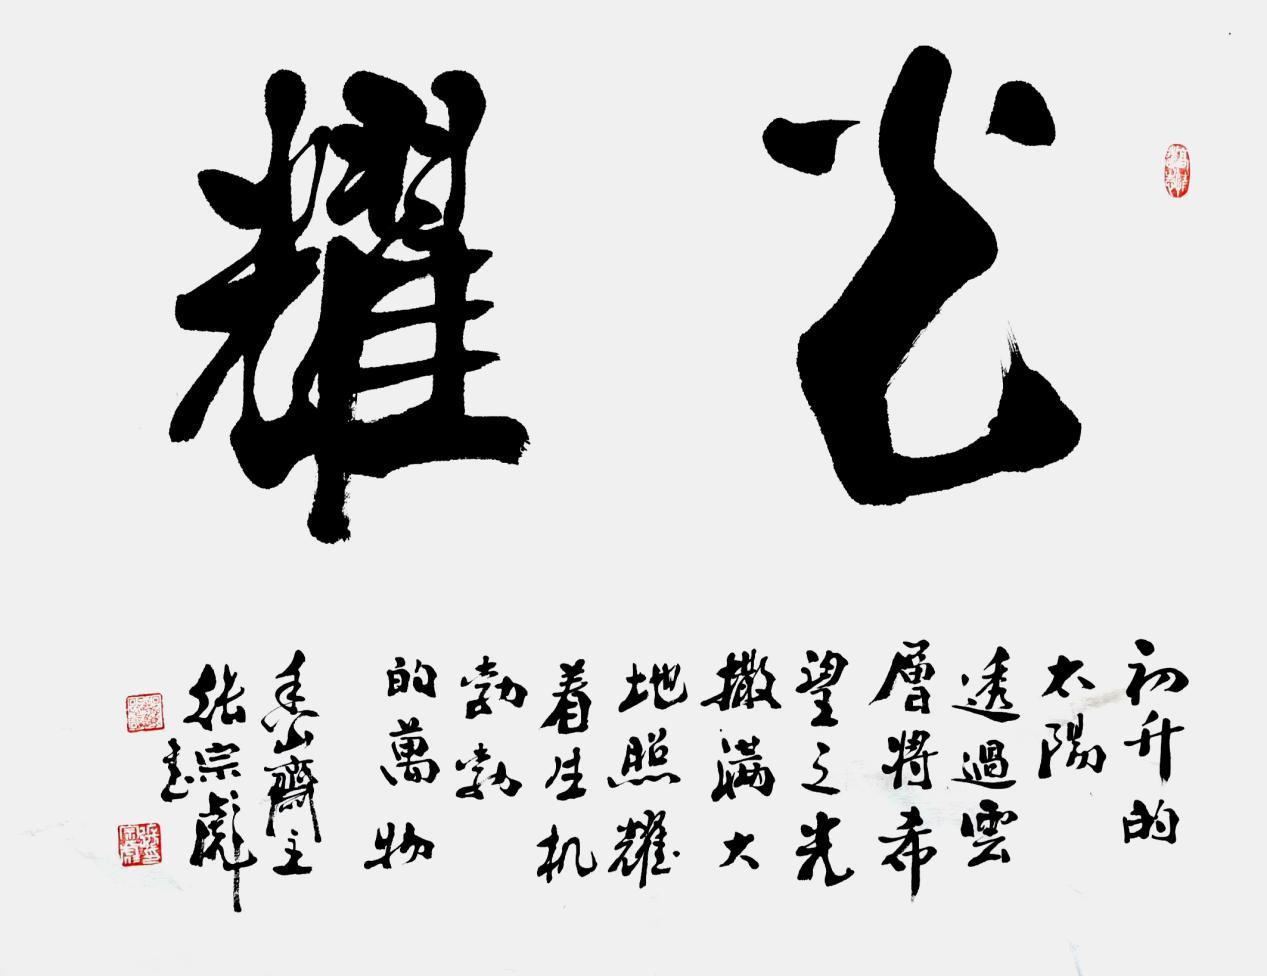 光耀
初升的
太陽
透過雲
層將希
望之光
撒滿大
地照耀
着生机
勃勃
的萬物
山齋主
张宗彪
書